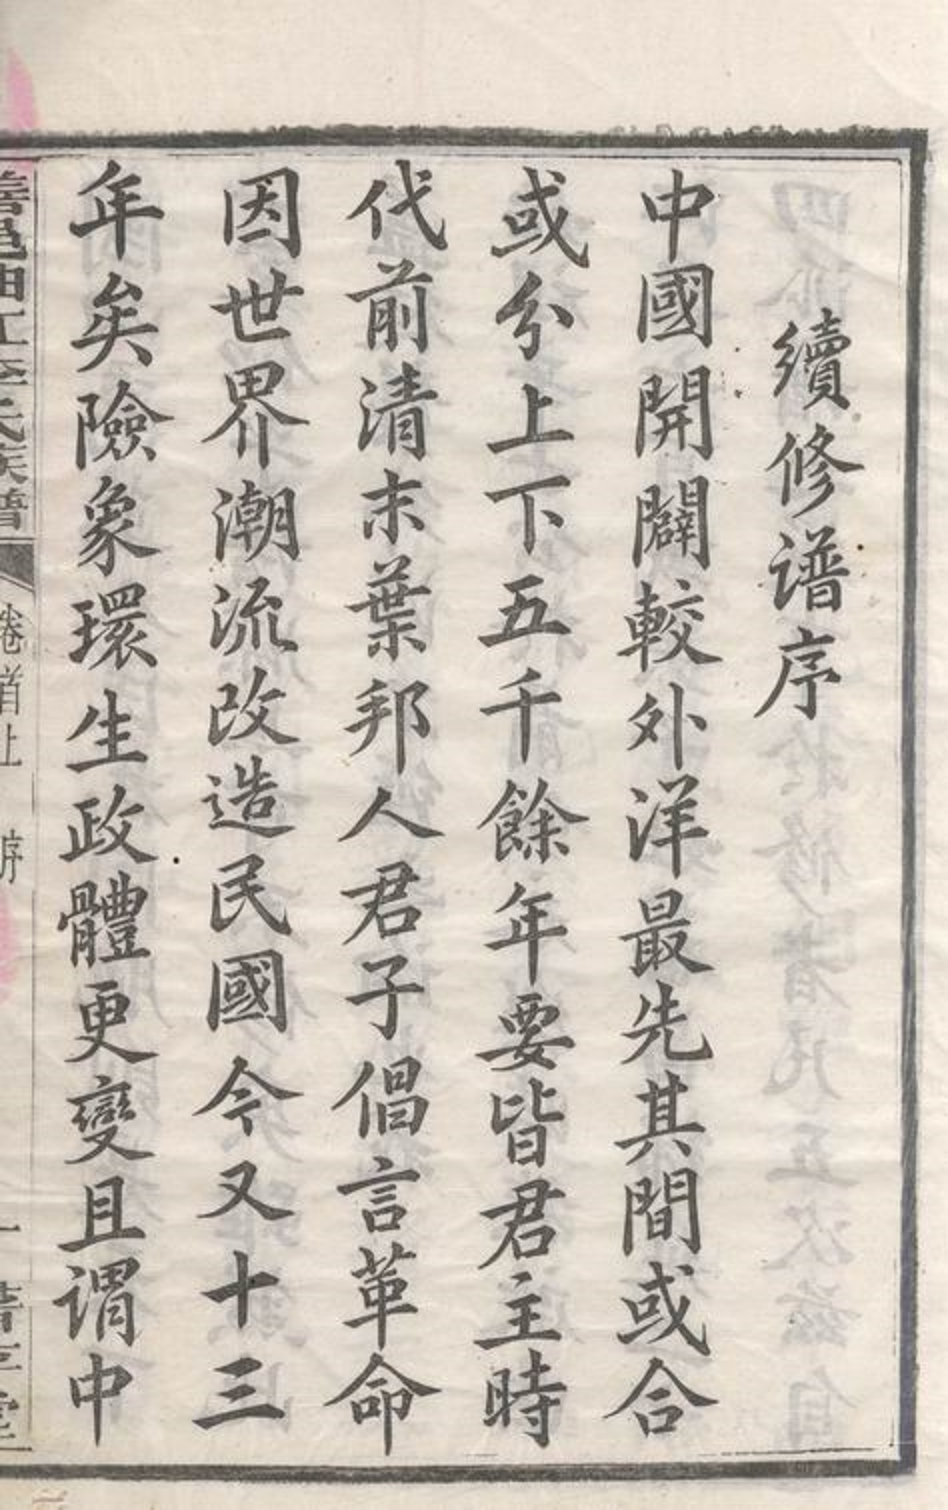 續修谱序
中國開闢較外洋最先其間或合
或分上下五千餘年要皆君主時
代前清末葉邦人君子倡言革命
因世界潮流改造民國今又十三
年矣險象環生政體更變且謂中
氏族譜
卷首上
序
一